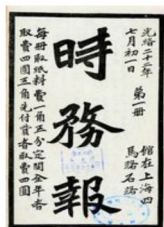 光緒二十二年
七月初一日
第一册
館在上海四
馬路石路
時務報
每册取紙料費一角五分定閱全年者
取費四圓三角先付資者取費四圓